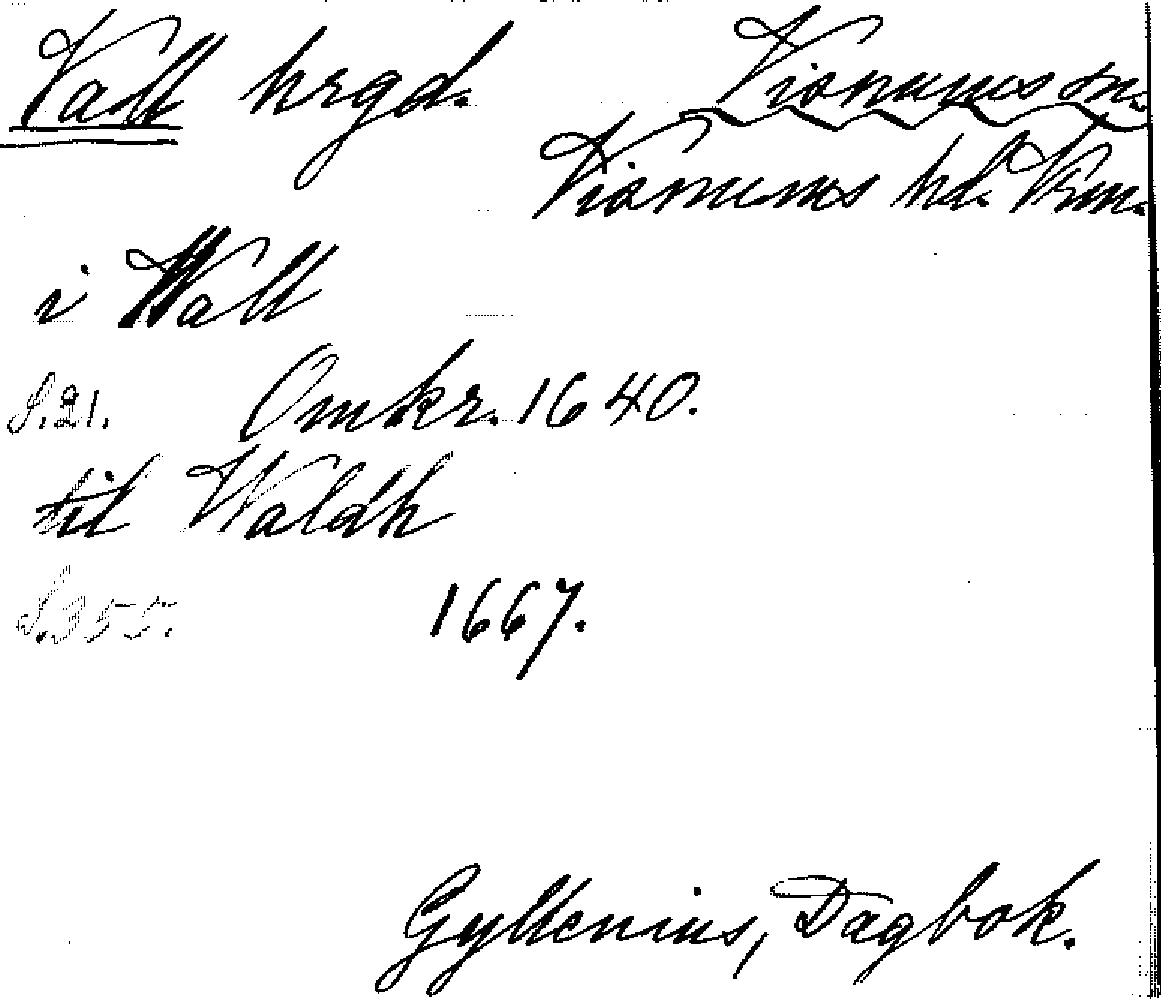 Vall hrgd. Visnums sn.
Visnums hd. Vrm.
i Wall
S.21. Omkr. 1640.
til Waldh
S.355. 1667.
Gyllenius, Dagbok.